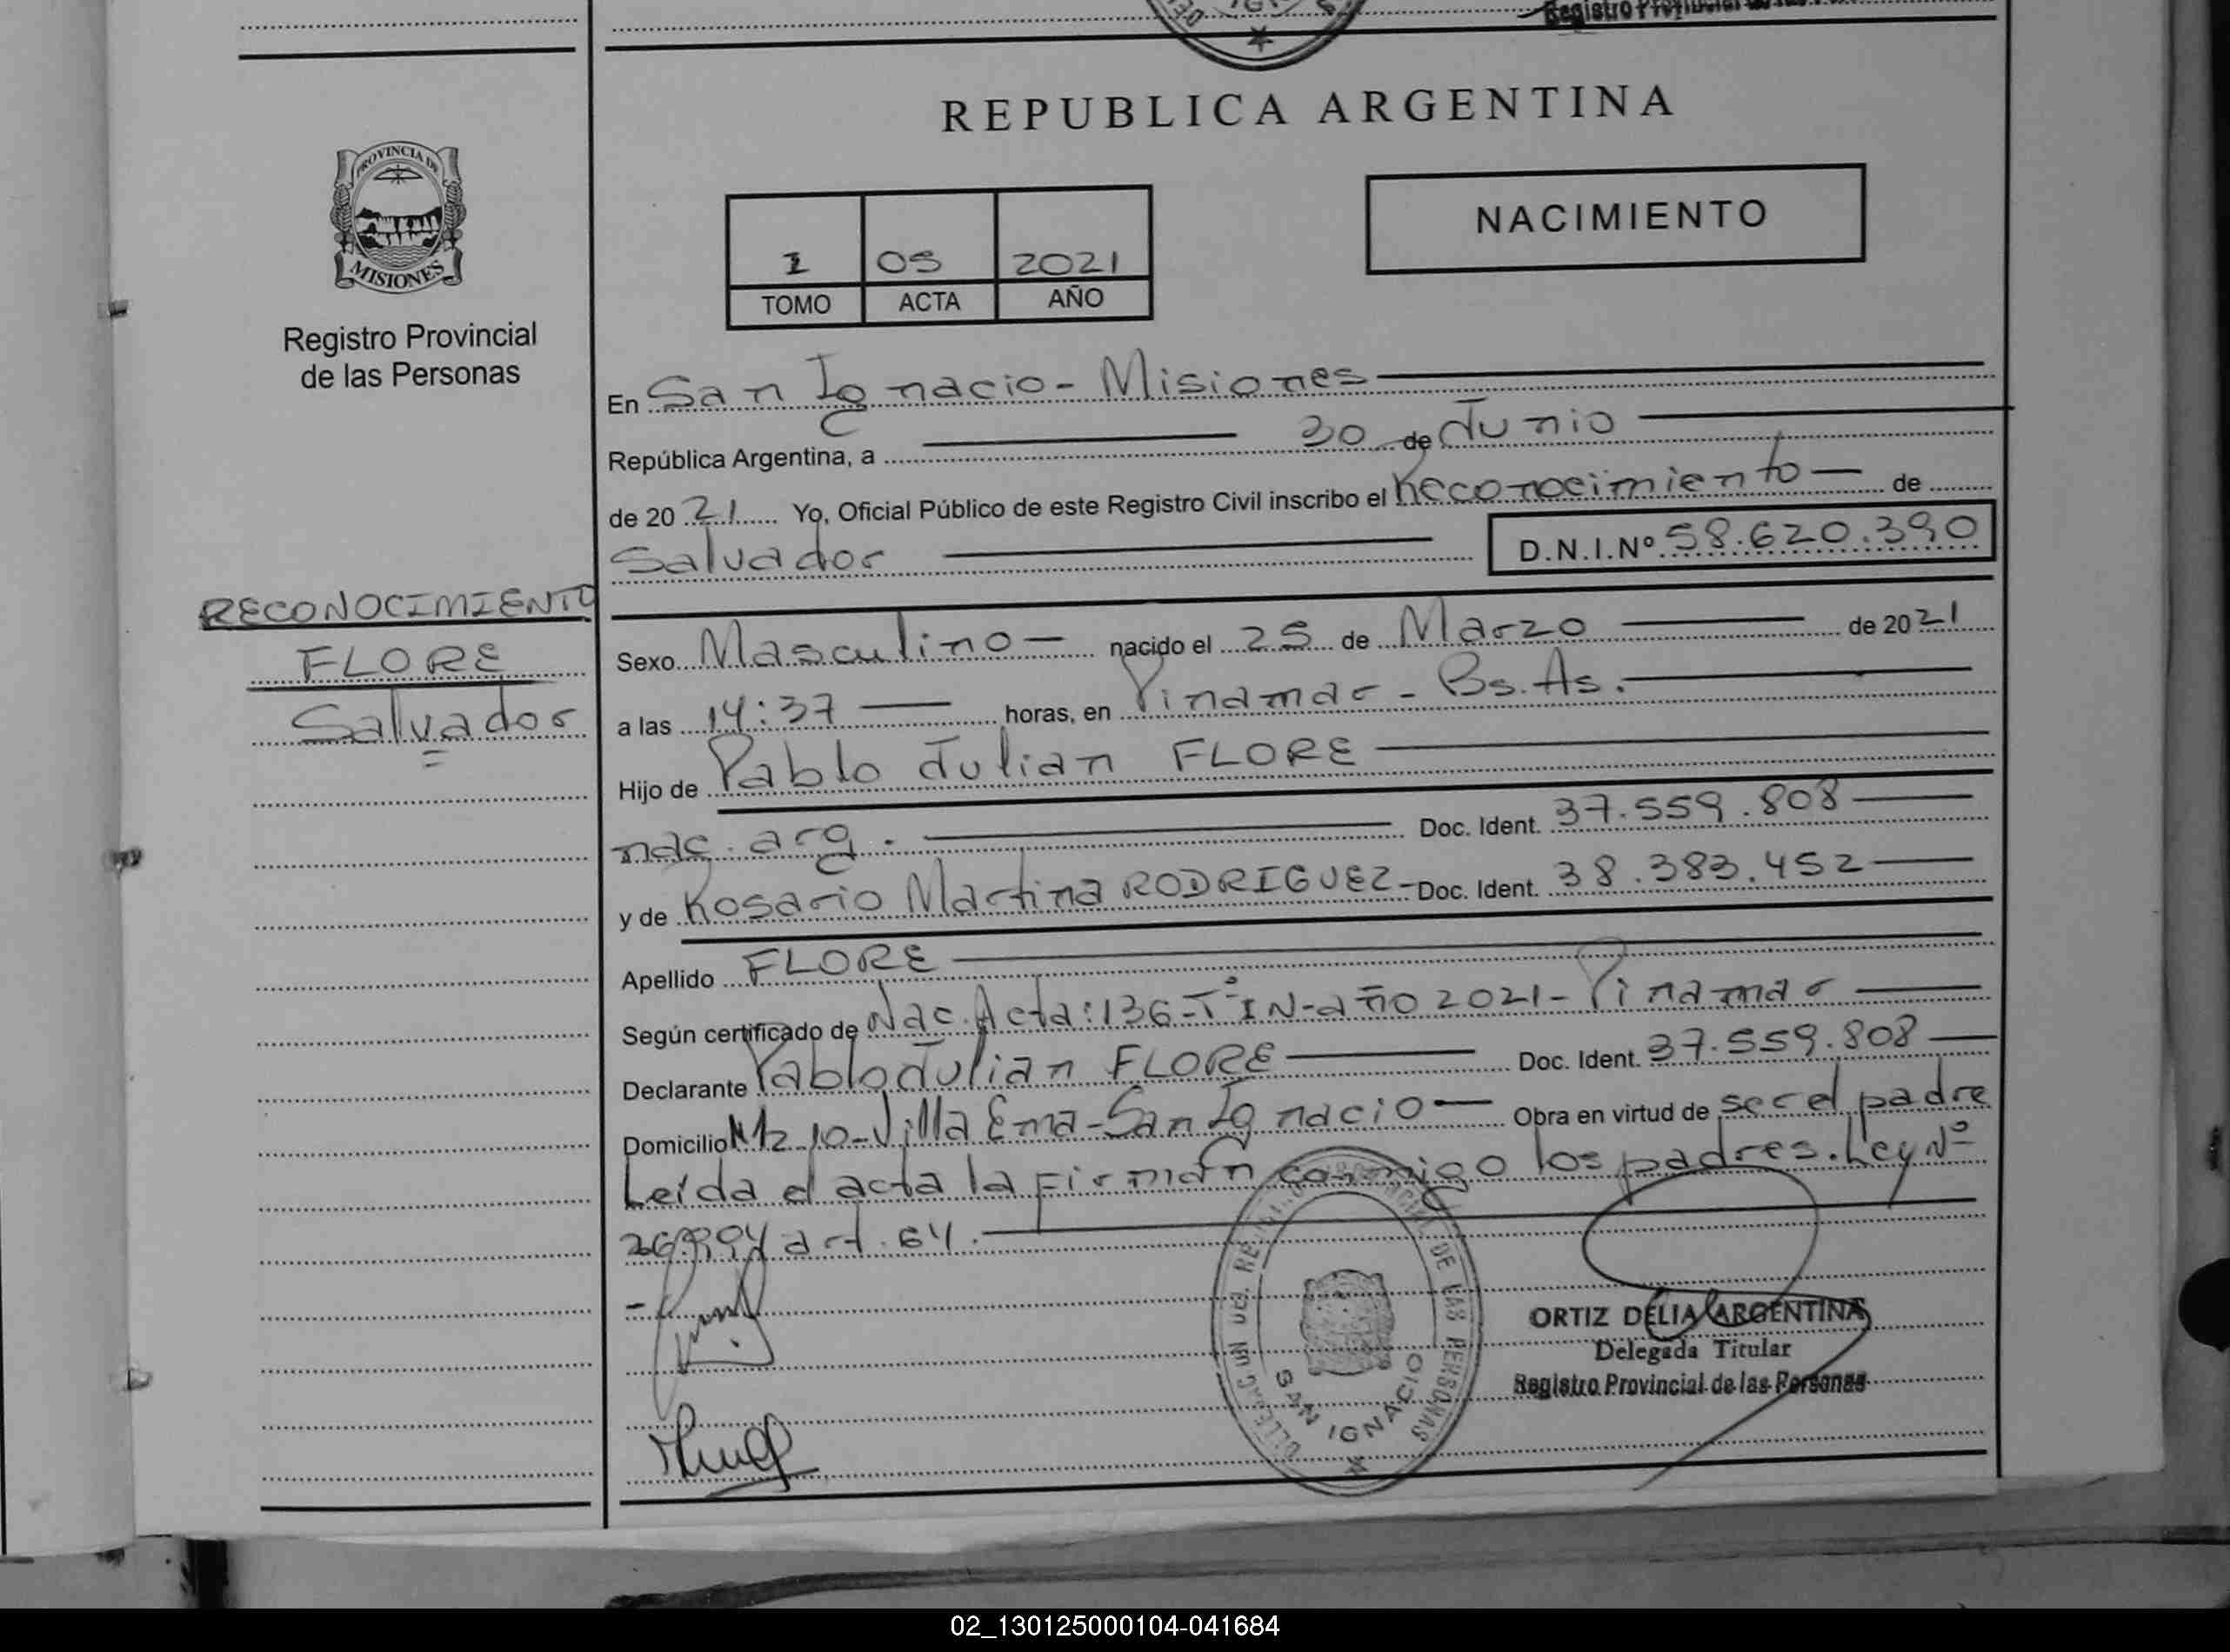 Registro Provincial de las Per
REPUBLICA ARGENTINA
PROVINCIA DE
MISIONES
Registro Provincial
de las Personas
1 05 2021
TOMO ACTA AÑO
NACIMIENTO
En San Ignacio - Misiones
República Argentina, a 30 de Junio
de 20 21 Yo, Oficial Público de este Registro Civil inscribo el Reconocimiento de
Salvador D.N.I.Nº 58.620.390
RECONOCIMIENTO
FLORE
Salvador
Sexo Masculino nacido el 25 de Marzo de 20 21
a las 14:37 horas, en Pinamar - Bs. As.
Hijo de Pablo Julian FLORE
nac. arg. Doc. Ident. 37.559.808
y de Rosario Martina RODRIGUEZ - Doc. Ident. 38.383.452
Apellido FLORE
Según certificado de Nac. Acta: 136 - Tº IN - año 2021 - Pinamar
Declarante Pablo Julian FLORE Doc. Ident. 37.559.808
Domicilio Mz 10 - Villa Ema - San Ignacio Obra en virtud de ser el padre
Leída el acta la firman conmigo los padres. Ley Nº
26.994 art. 64.
DELEGACION DEL REGISTRO PROVINCIAL DE LAS PERSONAS
SAN IGNACIO
ORTIZ DELIA ARGENTINA
Delegada Titular
Registro Provincial de las Personas
02_130125000104-041684